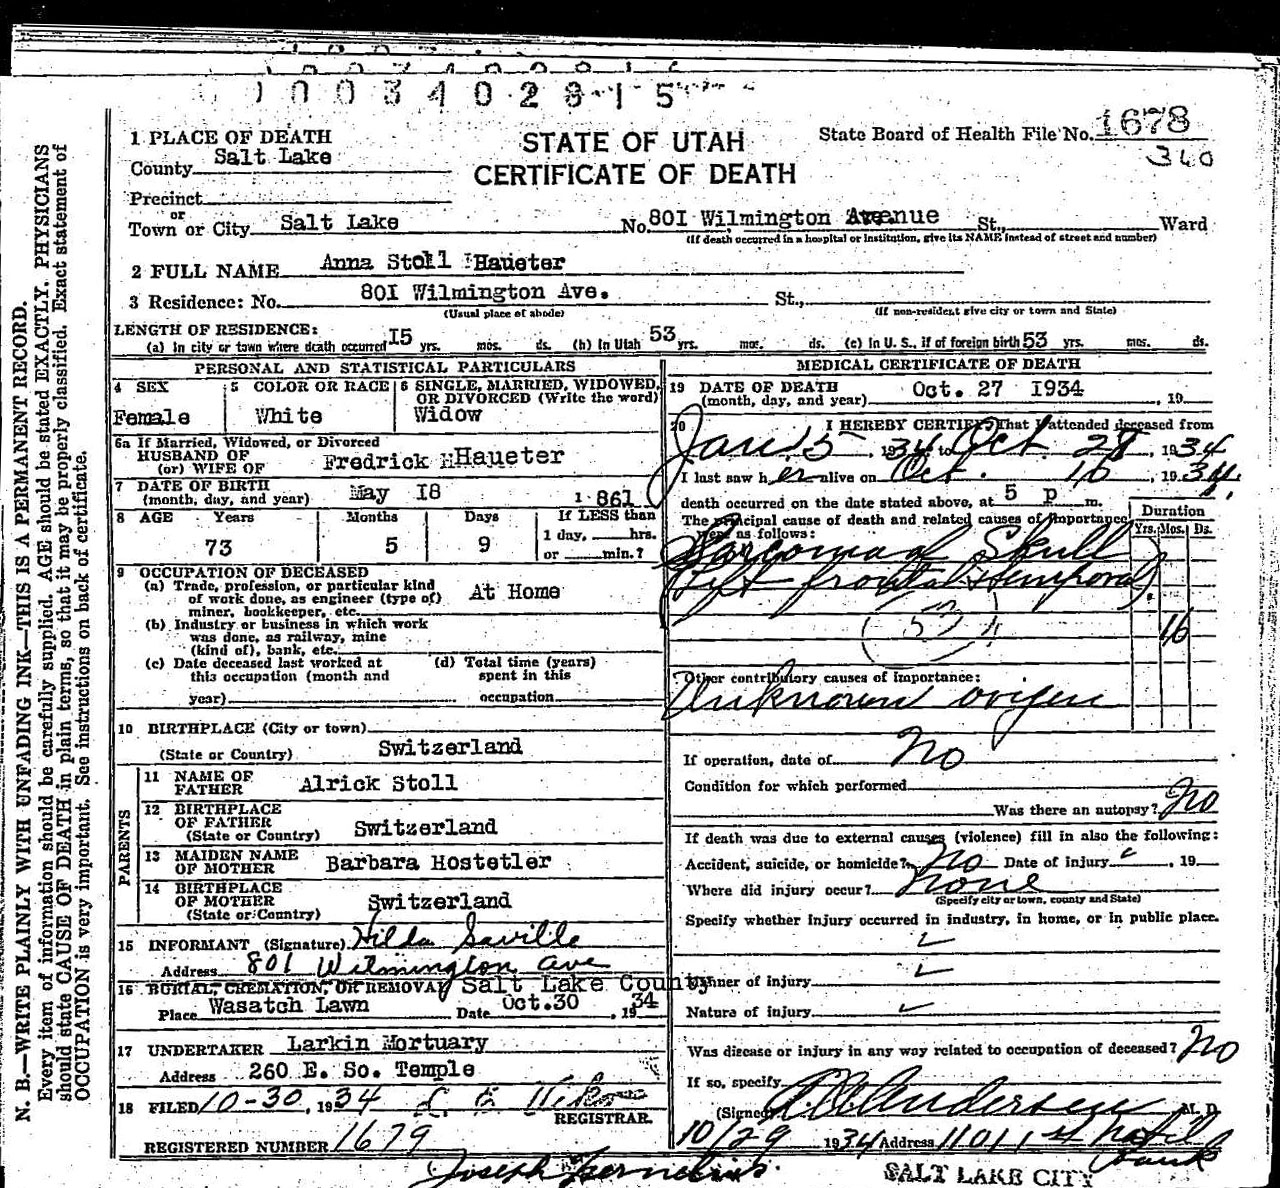 1 0 0 3 4 0 2 8 1 5
1 PLACE OF DEATH
County Salt Lake
Precinct
or
Town or City Salt Lake
STATE OF UTAH
CERTIFICATE OF DEATH
State Board of Health File No. 1678
340
No. 80I Wilmington Avenue St., Ward
(If death occurred in a hospital or institution, give its NAME instead of street and number)
2 FULL NAME Anna Stoll Haueter
3 Residence: No. 80I Wilmington Ave. St.,
(Usual place of abode) (If non-resident give city or town and State)
LENGTH OF RESIDENCE:
(a) In city or town where death occurred I5 yrs. mos. ds. (b) In Utah 53 yrs. mos. ds. (c) In U. S., if of foreign birth 53 yrs. mos. ds.
PERSONAL AND STATISTICAL PARTICULARS
4 SEX
Female
5 COLOR OR RACE
White
6 SINGLE, MARRIED, WIDOWED, OR DIVORCED (Write the word)
Widow
6a If Married, Widowed, or Divorced
HUSBAND OF
(or) WIFE OF Fredrick Haueter
7 DATE OF BIRTH
(month, day, and year) May I8 1861
8 AGE Years Months Days If LESS than
1 day, hrs.
73 5 9 or min.?
9 OCCUPATION OF DECEASED
(a) Trade, profession, or particular kind
of work done, as engineer (type of)
miner, bookkeeper, etc. At Home
(b) Industry or business in which work
was done, as railway, mine
(kind of), bank, etc.
(c) Date deceased last worked at
this occupation (month and
year)
(d) Total time (years)
spent in this
occupation
10 BIRTHPLACE (City or town)
(State or Country) Switzerland
PARENTS
11 NAME OF
FATHER Alrick Stoll
12 BIRTHPLACE
OF FATHER
(State or Country) Switzerland
13 MAIDEN NAME
OF MOTHER Barbara Hostetler
14 BIRTHPLACE
OF MOTHER
(State or Country) Switzerland
15 INFORMANT (Signature) Hilda Saville
Address 801 Wilmington Ave
16 BURIAL, CREMATION, OR REMOVAL Salt Lake County
Place Wasatch Lawn Date Oct.30, 1934
17 UNDERTAKER Larkin Mortuary
Address 260 E. So. Temple
18 FILED 10-30, 1934
REGISTRAR.
REGISTERED NUMBER 1679
MEDICAL CERTIFICATE OF DEATH
19 DATE OF DEATH
(month, day, and year) Oct. 27 I934, 19
20 I HEREBY CERTIFY, That I attended deceased from
Jan 15, 1934, to Oct. 28, 1934
I last saw her alive on Oct. 16, 1934
death occurred on the date stated above, at 5 p m.
The principal cause of death and related causes of importance
were as follows:
Duration
Yrs. Mos. Ds.
Sarcoma of Skull
left frontal & temporal.
53
16
Other contributory causes of importance:
Unknown origen
If operation, date of No
Condition for which performed
Was there an autopsy? No
If death was due to external causes (violence) fill in also the following:
Accident, suicide, or homicide? No Date of injury , 19
Where did injury occur? None
(Specify city or town, county and State)
Specify whether injury occurred in industry, in home, or in public place.
Manner of injury
Nature of injury
Was disease or injury in any way related to occupation of deceased? No
If so, specify
(Signed) Anderson M. D.
10/29 1934 Address 1101 1st Natl
Bank
SALT LAKE CITY
Joseph
N. B.—WRITE PLAINLY WITH UNFADING INK—THIS IS A PERMANENT RECORD.
Every item of information should be carefully supplied. AGE should be stated EXACTLY. PHYSICIANS
should state CAUSE OF DEATH in plain terms, so that it may be properly classified. Exact statement of
OCCUPATION is very important. See instructions on back of certificate.